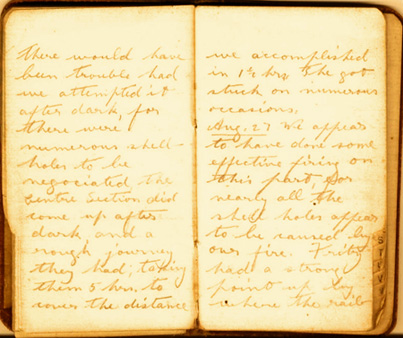 there would have
been trouble had
we attempted it
after dark, for
there were
numerous shell-
holes to be
negociated, the
centre Section did
come up after
dark, and a
rough journey
they had; taking
them 5 hrs. to
cover the distance
we accomplished
in 1½ hrs, She got
stuck on numerous
occasions.
Aug. 27 We appear
to have done some
effective firing on
this part, for
nearly all the
shell holes appear
to be caused by
our fire. Fritz
had a strong
point up by
where the rail